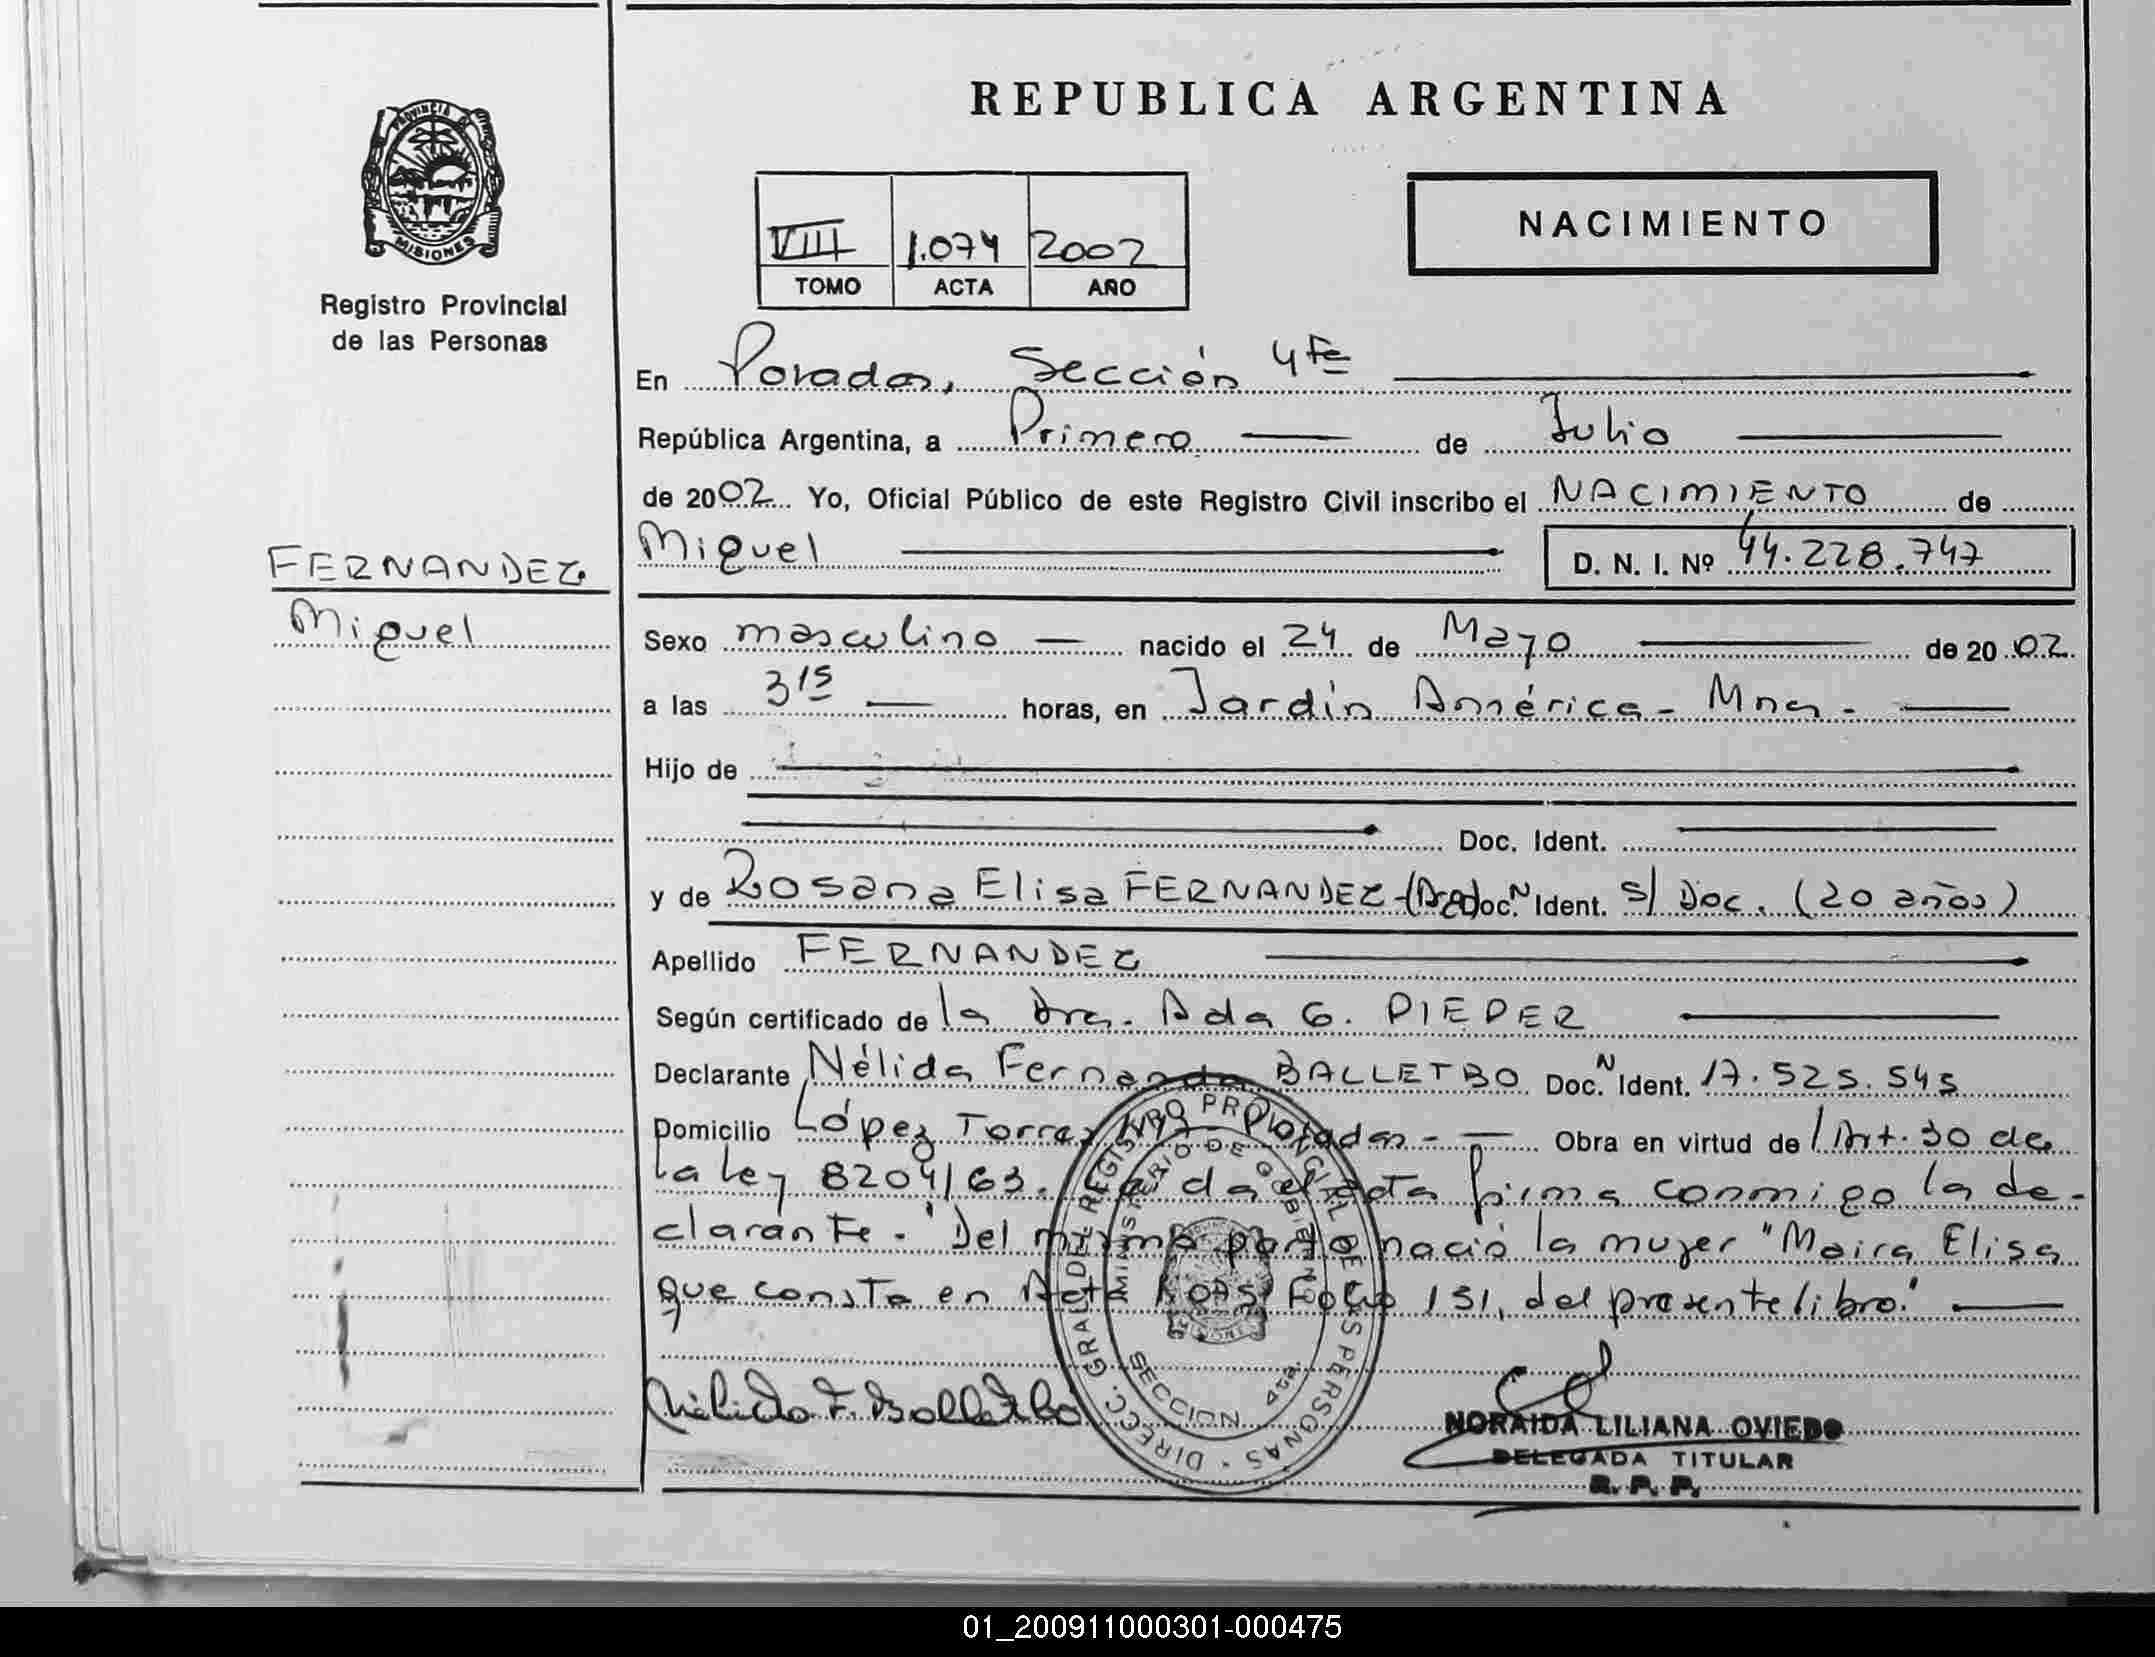 REPUBLICA ARGENTINA
PROVINCIA DE
MISIONES
Registro Provincial
de las Personas
VIII 1.074 2002
TOMO ACTA AÑO
NACIMIENTO
En Posadas, Sección 4ta
República Argentina, a Primero de Julio
de 2002 Yo, Oficial Público de este Registro Civil inscribo el NACIMIENTO de
Miguel D. N. I. Nº 44.228.747
FERNANDEZ
Miguel
Sexo masculino nacido el 24 de Mayo de 2002
a las 3 15 horas, en Jardín América - Mnes -
Hijo de
Doc. Ident.
y de Rosana Elisa FERNANDEZ - (Arg) Doc. N Ident. s/ Doc. (20 años)
Apellido FERNANDEZ
Según certificado de la Dra. Ada G. PIEPER
Declarante Nélida Fernanda BALLETBO Doc. N Ident. 17.525.545
Domicilio López Torres Posadas - Obra en virtud de Art. 30 de
la ley 8204/63. Leída el acta firma conmigo la de-
clarante. Del mismo parto nació la mujer "Maira Elisa
que consta en Acta Folio 151, del presente libro."
Nélida F. Balletbo
DIRECC. GRAL DEL REGISTRO PROVINCIAL DE LAS PERSONAS
MINISTERIO DE GOBIERNO
SECCION 4ta.
MISIONES
NORAIDA LILIANA OVIEDO
DELEGADA TITULAR
R. P. P.
01_200911000301-000475